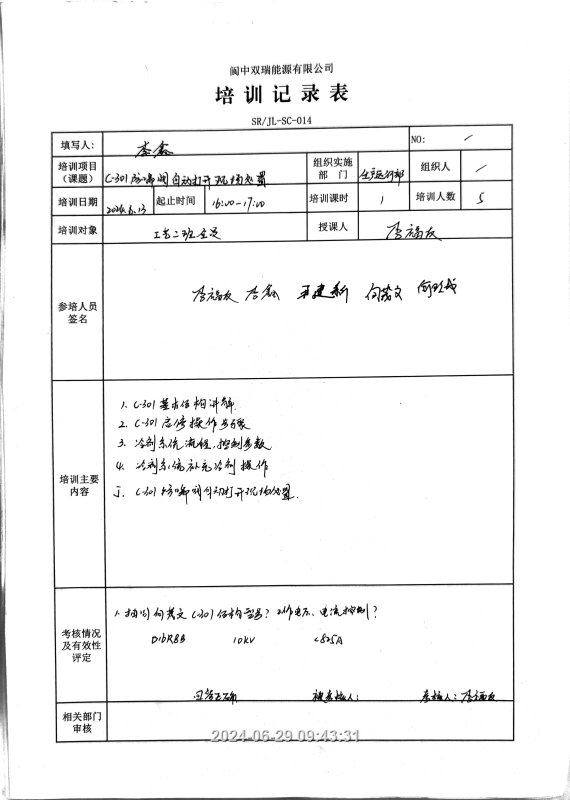 阆中双瑞能源有限公司
培训记录表
SR/JL-SC-014
填写人: 李鑫 NO: /
培训项目（课题） C-301防喘阀自动打开现场处置 组织实施部门 生产运行部 组织人 /
培训日期 2024.6.13 起止时间 16:00-17:00 培训课时 1 培训人数 5
培训对象 工艺二班全员 授课人 李福友
参培人员签名
李福友 李鑫 建新 向茂文
培训主要内容
1. C-301基本结构讲解
2. C-301启停操作步骤
3. 冷剂系统流程,控制参数
4. 冷剂系统补充冷剂操作
5. C-301防喘阀自动打开现场处置.
考核情况及有效性评定
1. 抽问向茂文C-301结构型号? 工作电压、电流控制?
D16R8B 10KV <825A
回答正确 被考核人: 考核人: 李福友
相关部门审核
2024-06-29 09:43:31